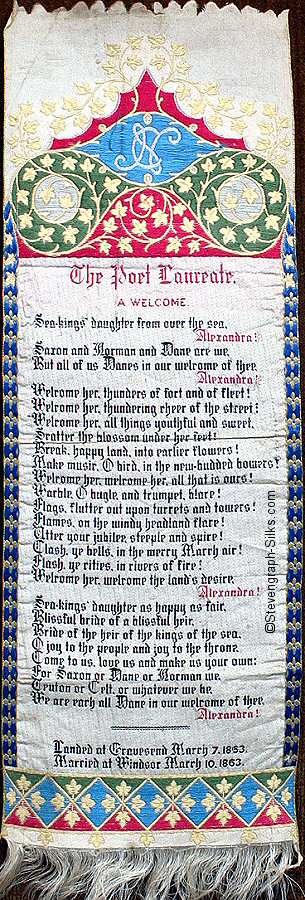 The Poet Laureate.
A WELCOME.
Sea-kings' daughter from over the sea,
Alexandra!
Saxon and Norman and Dane are we,
But all of us Danes in our welcome of thee,
Alexandra!
Welcome her, thunders of fort and of fleet!
Welcome her, thundering cheer of the street!
Welcome her, all things youthful and sweet,
Scatter the blossom under her feet!
Break, happy land, into earlier flowers!
Make music, O bird, in the new-budded bowers!
Welcome her, welcome her, all that is ours!
Warble, O bugle, and trumpet, blare!
Flags, flutter out upon turrets and towers!
Flames, on the windy headland flare!
Utter your jubilee, steeple and spire!
Clash, ye bells, in the merry March air!
Flash, ye cities, in rivers of fire!
Welcome her, welcome the land's desire,
Alexandra!
Sea-kings' daughter as happy as fair,
Blissful bride of a blissful heir,
Bride of the heir of the kings of the sea,
O joy to the people and joy to the throne,
Come to us, love us and make us your own:
For Saxon or Dane or Norman we,
Teuton or Celt, or whatever we be,
We are each all Dane in our welcome of thee,
Alexandra!
Landed at Gravesend March 7. 1863.
Married at Windsor March 10. 1863.
©Stevengraph-Silks.com